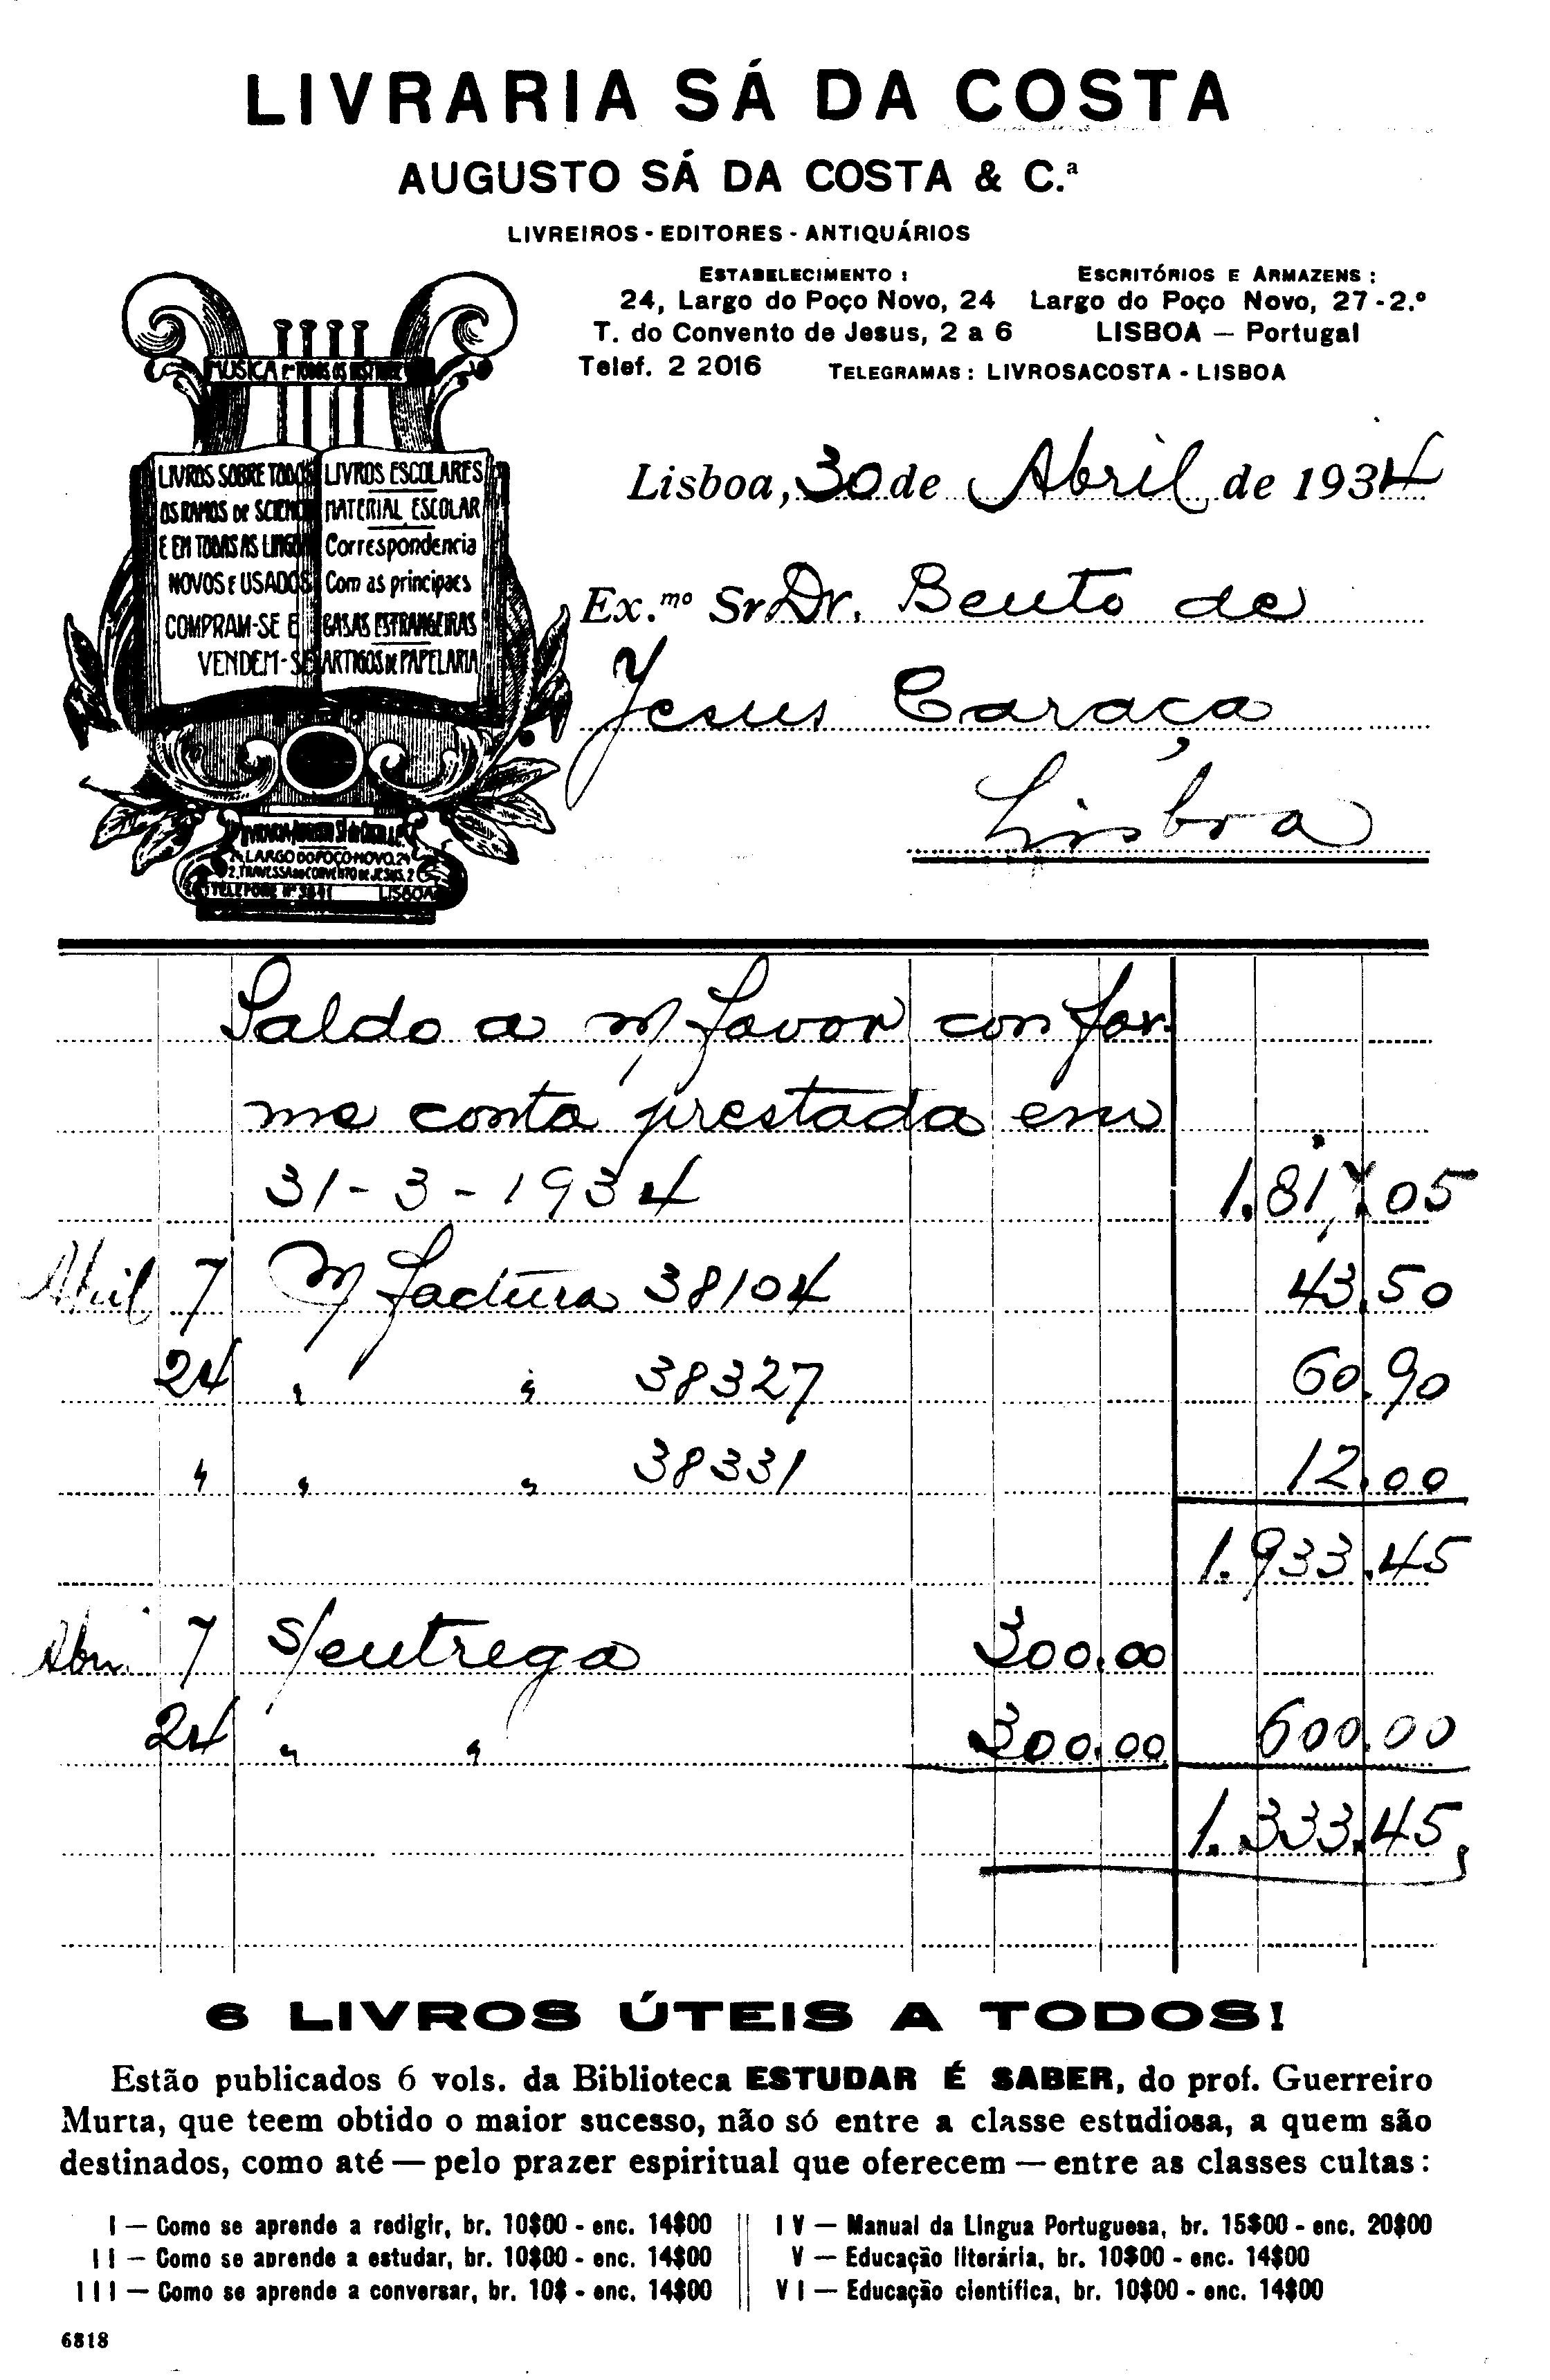 LIVRARIA SÁ DA COSTA
AUGUSTO SÁ DA COSTA & C.ª
LIVREIROS - EDITORES - ANTIQUÁRIOS
ESTABELECIMENTO :
24, Largo do Poço Novo, 24
T. do Convento de Jesus, 2 a 6
Telef. 2 2016
ESCRITÓRIOS E ARMAZENS :
Largo do Poço Novo, 27-2.º
LISBOA — Portugal
TELEGRAMAS : LIVROSACOSTA - LISBOA
MUSICA
LIVROS SOBRE TODOS
OS RAMOS DE SCIENC
E EM TODAS AS LINGO
NOVOS E USADOS
COMPRAM-SE E
VENDEM-SE
LIVROS ESCOLARES
MATERIAL ESCOLAR
Correspondencia
Com as principaes
CASAS ESTRANGEIRAS
ARTIGOS DE PAPELARIA
LARGO DO POÇO NOVO, 24
2, TRAVESSA DO CONVENTO DE JESUS, 2
TELEFONE Nº
LISBOA
Lisboa, 30 de Abril de 1934
Ex.mo Sr Dr. Bento de
Jesus Caraça
Lisboa
Saldo a m/ favor confor-
me conta prestada em
31-3-1934 1.817.05
Abril 7 m/ factura 38104 43.50
24 " " 38327 60.90
" " " 38331 12.00
1.933.45
Abril 7 s/entrega 300.00
24 " " 300.00 600.00
1.333.45
6 LIVROS ÚTEIS A TODOS!
Estão publicados 6 vols. da Biblioteca ESTUDAR É SABER, do prof. Guerreiro
Murta, que teem obtido o maior sucesso, não só entre a classe estudiosa, a quem são
destinados, como até — pelo prazer espiritual que oferecem — entre as classes cultas:
I — Como se aprende a redigir, br. 10$00 - enc. 14$00
II — Como se aprende a estudar, br. 10$00 - enc. 14$00
III — Como se aprende a conversar, br. 10$ - enc. 14$00
IV — Manual da Lingua Portuguesa, br. 15$00 - enc. 20$00
V — Educação literária, br. 10$00 - enc. 14$00
VI — Educação científica, br. 10$00 - enc. 14$00
6818